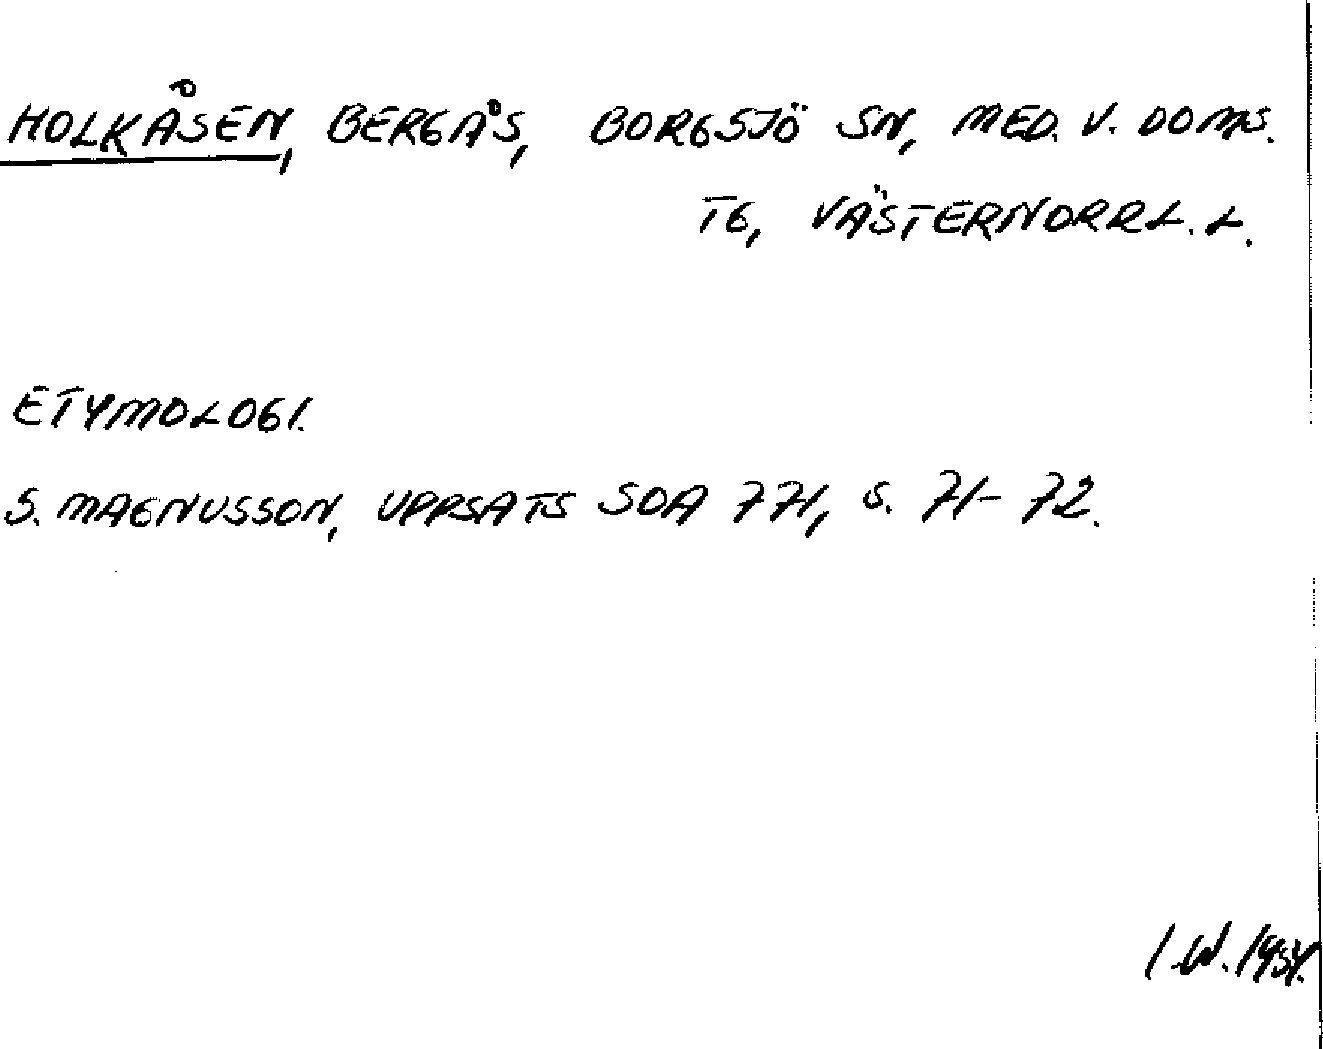 HOLKÅSEN, BERGÅS, BORGSJÖ SN, MED. V. DOMS.
TG, VÄSTERNORRL. L.
ETYMOLOGI.
S. MAGNUSSON, UPPSATS SOA 771, S. 71-72.
I.W.